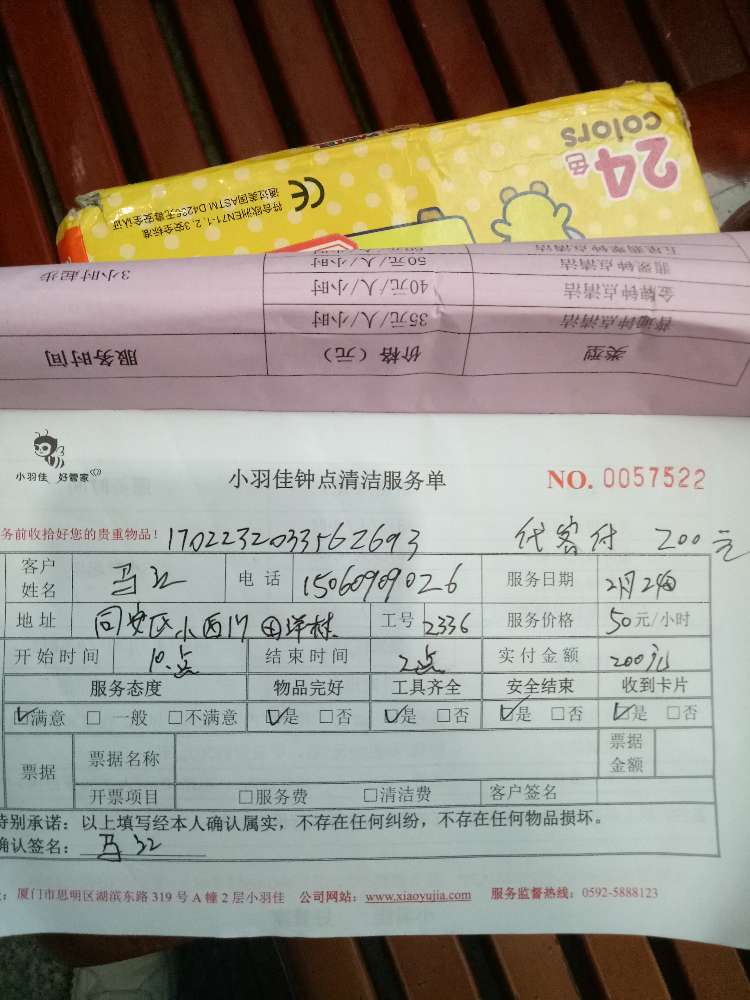 24色
colors
符合欧洲EN71-1, 2, 3安全标准
通过美国ASTM D4236无毒安全认证
CE
翡翠钟点清洁 50元/人/小时 3小时起步
金牌钟点清洁 40元/人/小时
普通钟点清洁 35元/人/小时
类型 价格（元） 服务时间
小羽佳 好管家
小羽佳钟点清洁服务单
NO. 0057522
务前收拾好您的贵重物品！ 1702232033562693 代客付 200元
客户姓名 马 电话 15060909026 服务日期 2月24日
地址 同安区小西门 工号 2336 服务价格 50元/小时
开始时间 10点 结束时间 2点 实付金额 200元
服务态度 物品完好 工具齐全 安全结束 收到卡片
☑满意 □一般 □不满意 ☑是 □否 ☑是 □否 ☑是 □否 ☑是 □否
票据 票据名称 票据金额
开票项目 □服务费 □清洁费 客户签名
特别承诺：以上填写经本人确认属实，不存在任何纠纷，不存在任何物品损坏。
确认签名：马
：厦门市思明区湖滨东路 319 号 A 幢 2 层小羽佳 公司网站：www.xiaoyujia.com 服务监督热线：0592-5888123